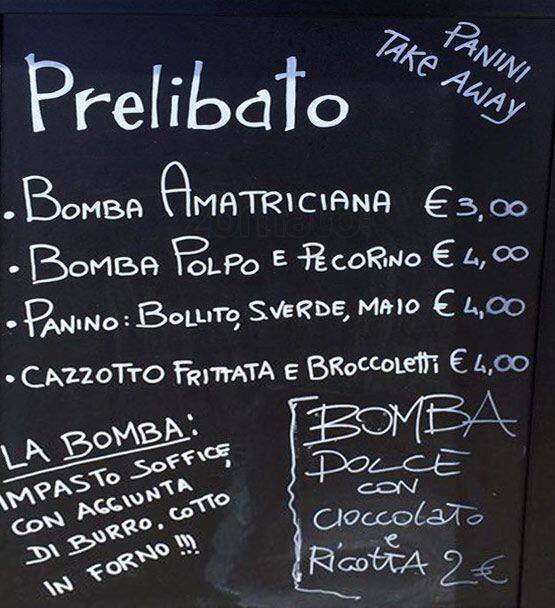 PANINI
TAKE AWAY
Prelibato
• BOMBA AMATRICIANA €3,00
• BOMBA POLPO E PECORINO € 4,00
• PANINO: BOLLITO, S.VERDE, MAIO € 4,00
• CAZZOTTO FRITTATA E BROCCOLETTI € 4,00
LA BOMBA:
IMPASTO SOFFICE,
CON AGGIUNTA
DI BURRO. COTTO
IN FORNO!!!
BOMBA
DOLCE
CON
CIOCCOLATO
e
RICOTTA 2€